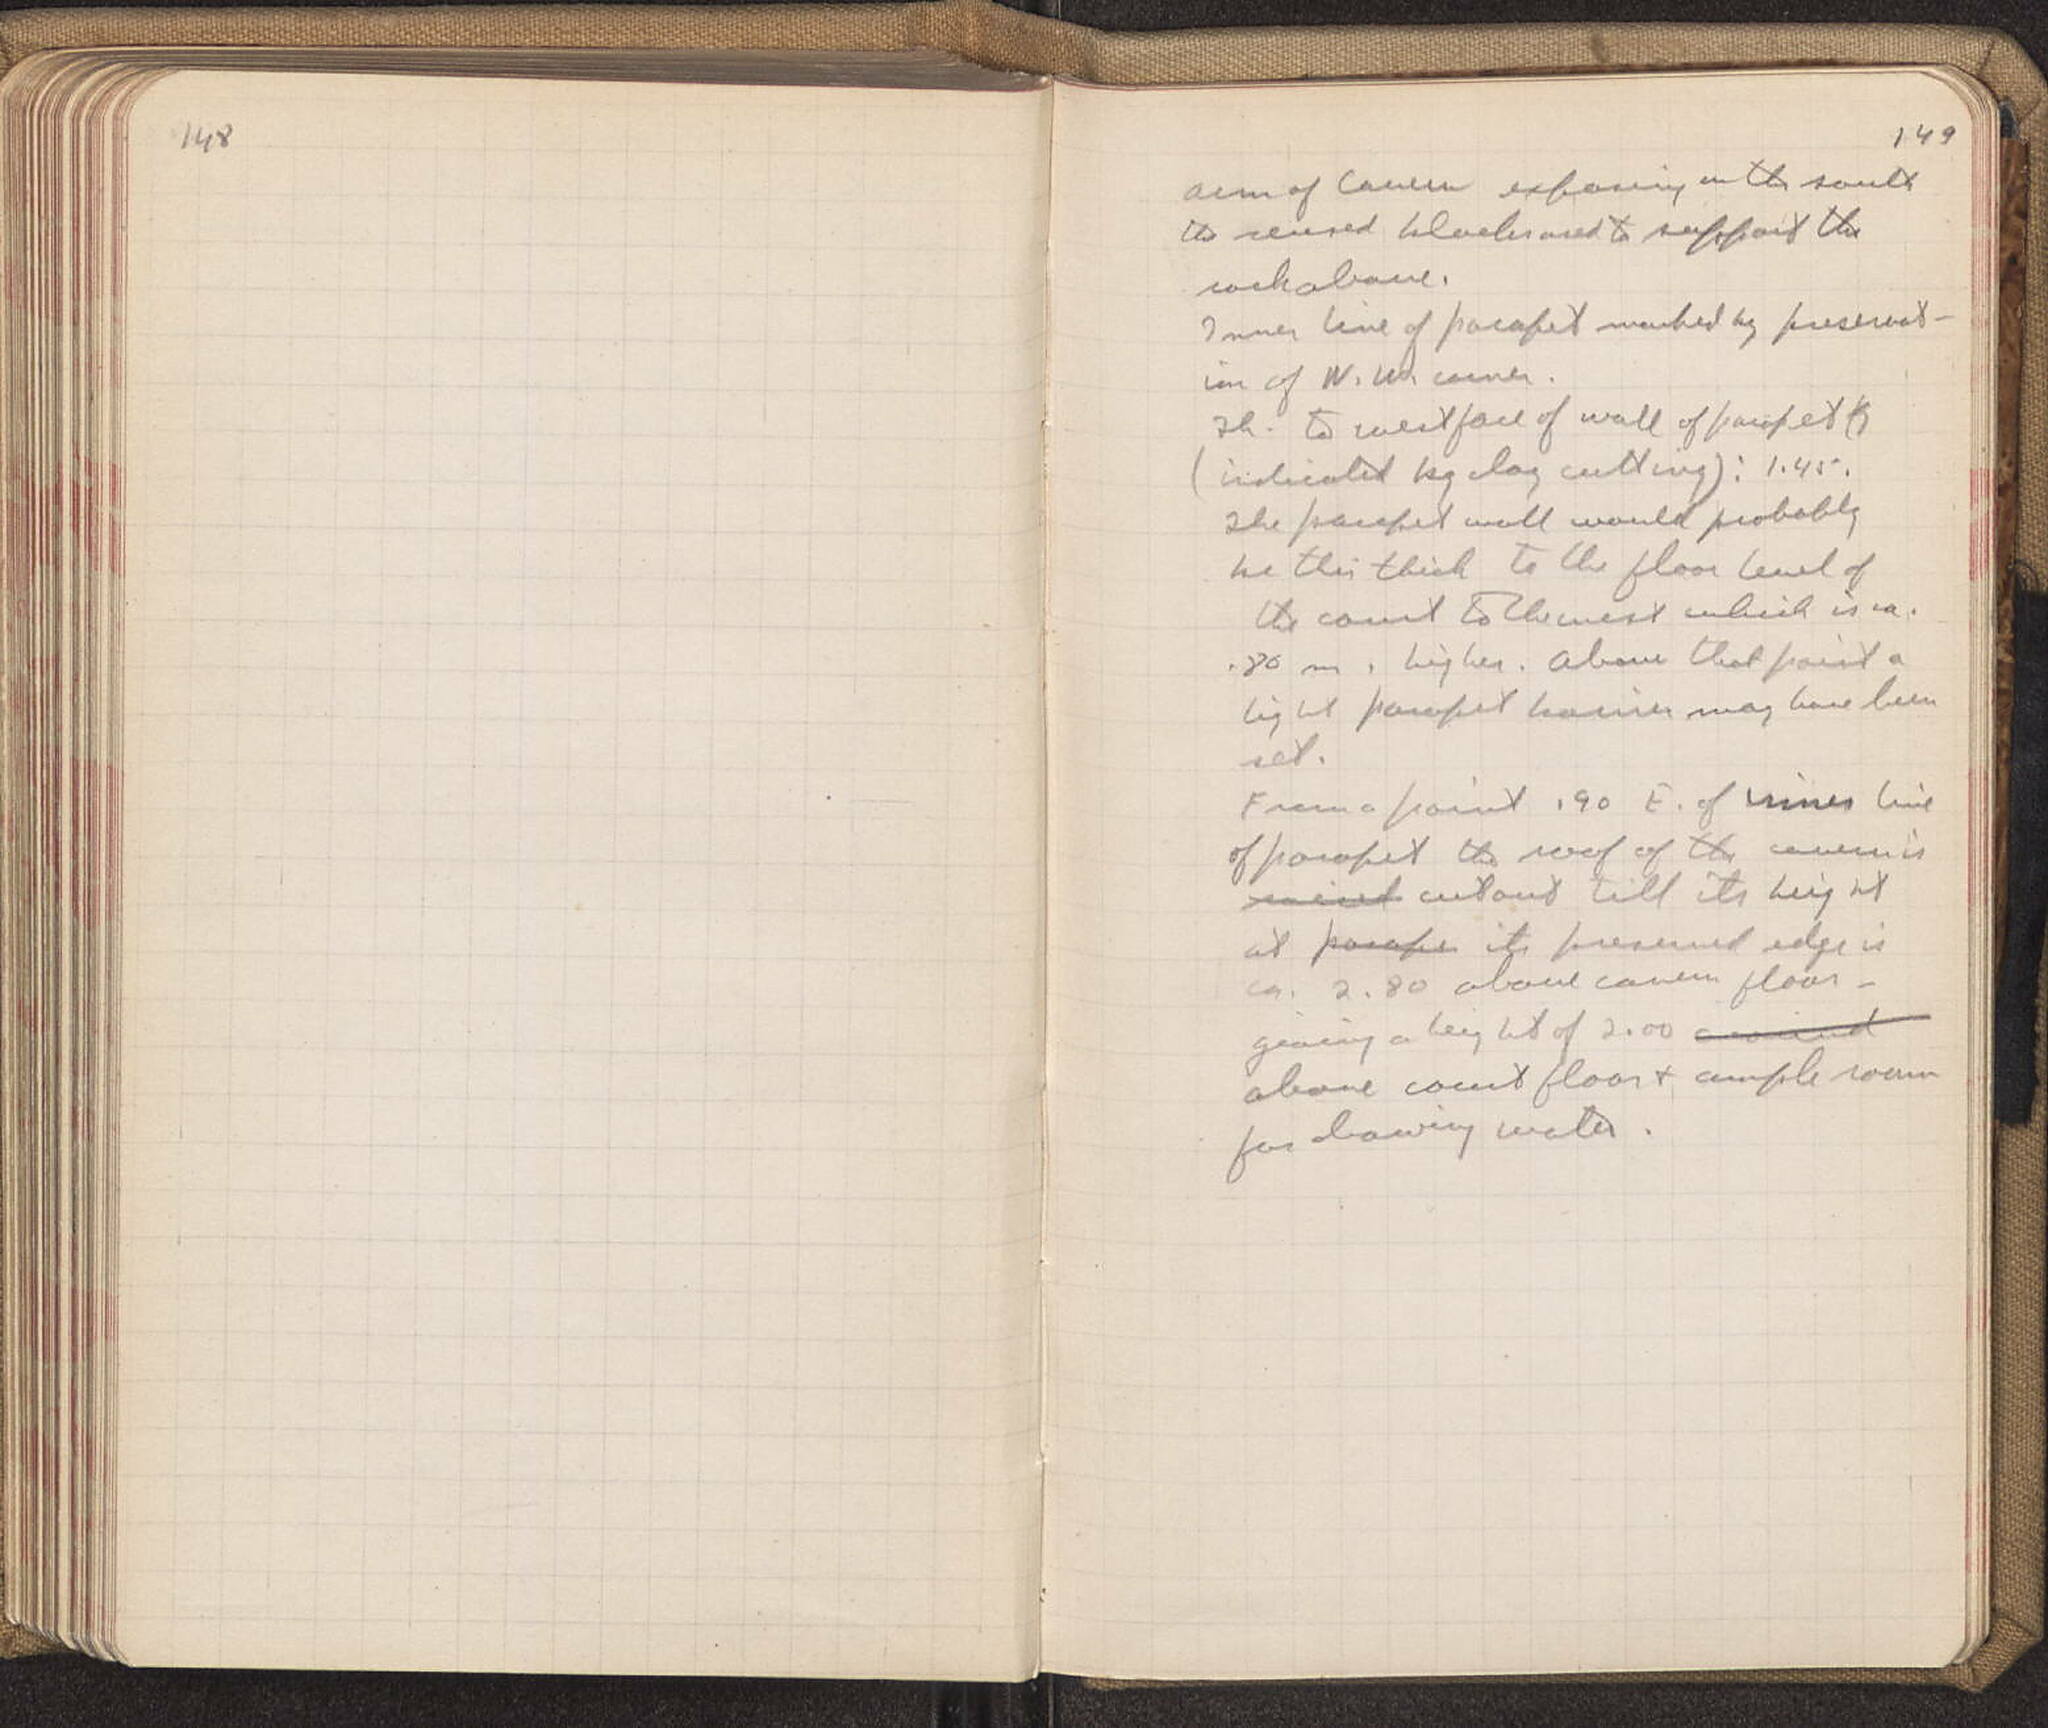 148
149
arm of Cavern exposing on the south
the reused blocks used to support the
rock above.
Inner line of parapet marked by preservat-
ion of N.W. corner.
Th. to west face of wall of parapet
(indicated by clay cutting): 1.45.
The parapet wall would probably
be this thick to the floor level of
the court to the west which is ca.
.80 m. higher. Above that point a
light parapet barrier may have been
set.
From a point .90 E. of inner line
of parapet the roof of the cavern is
raised cut out till its height
at parape its preserved edge is
ca. 2.80 above cavern floor -
giving a height of 2.00 around
above court floor & ample room
for drawing water.